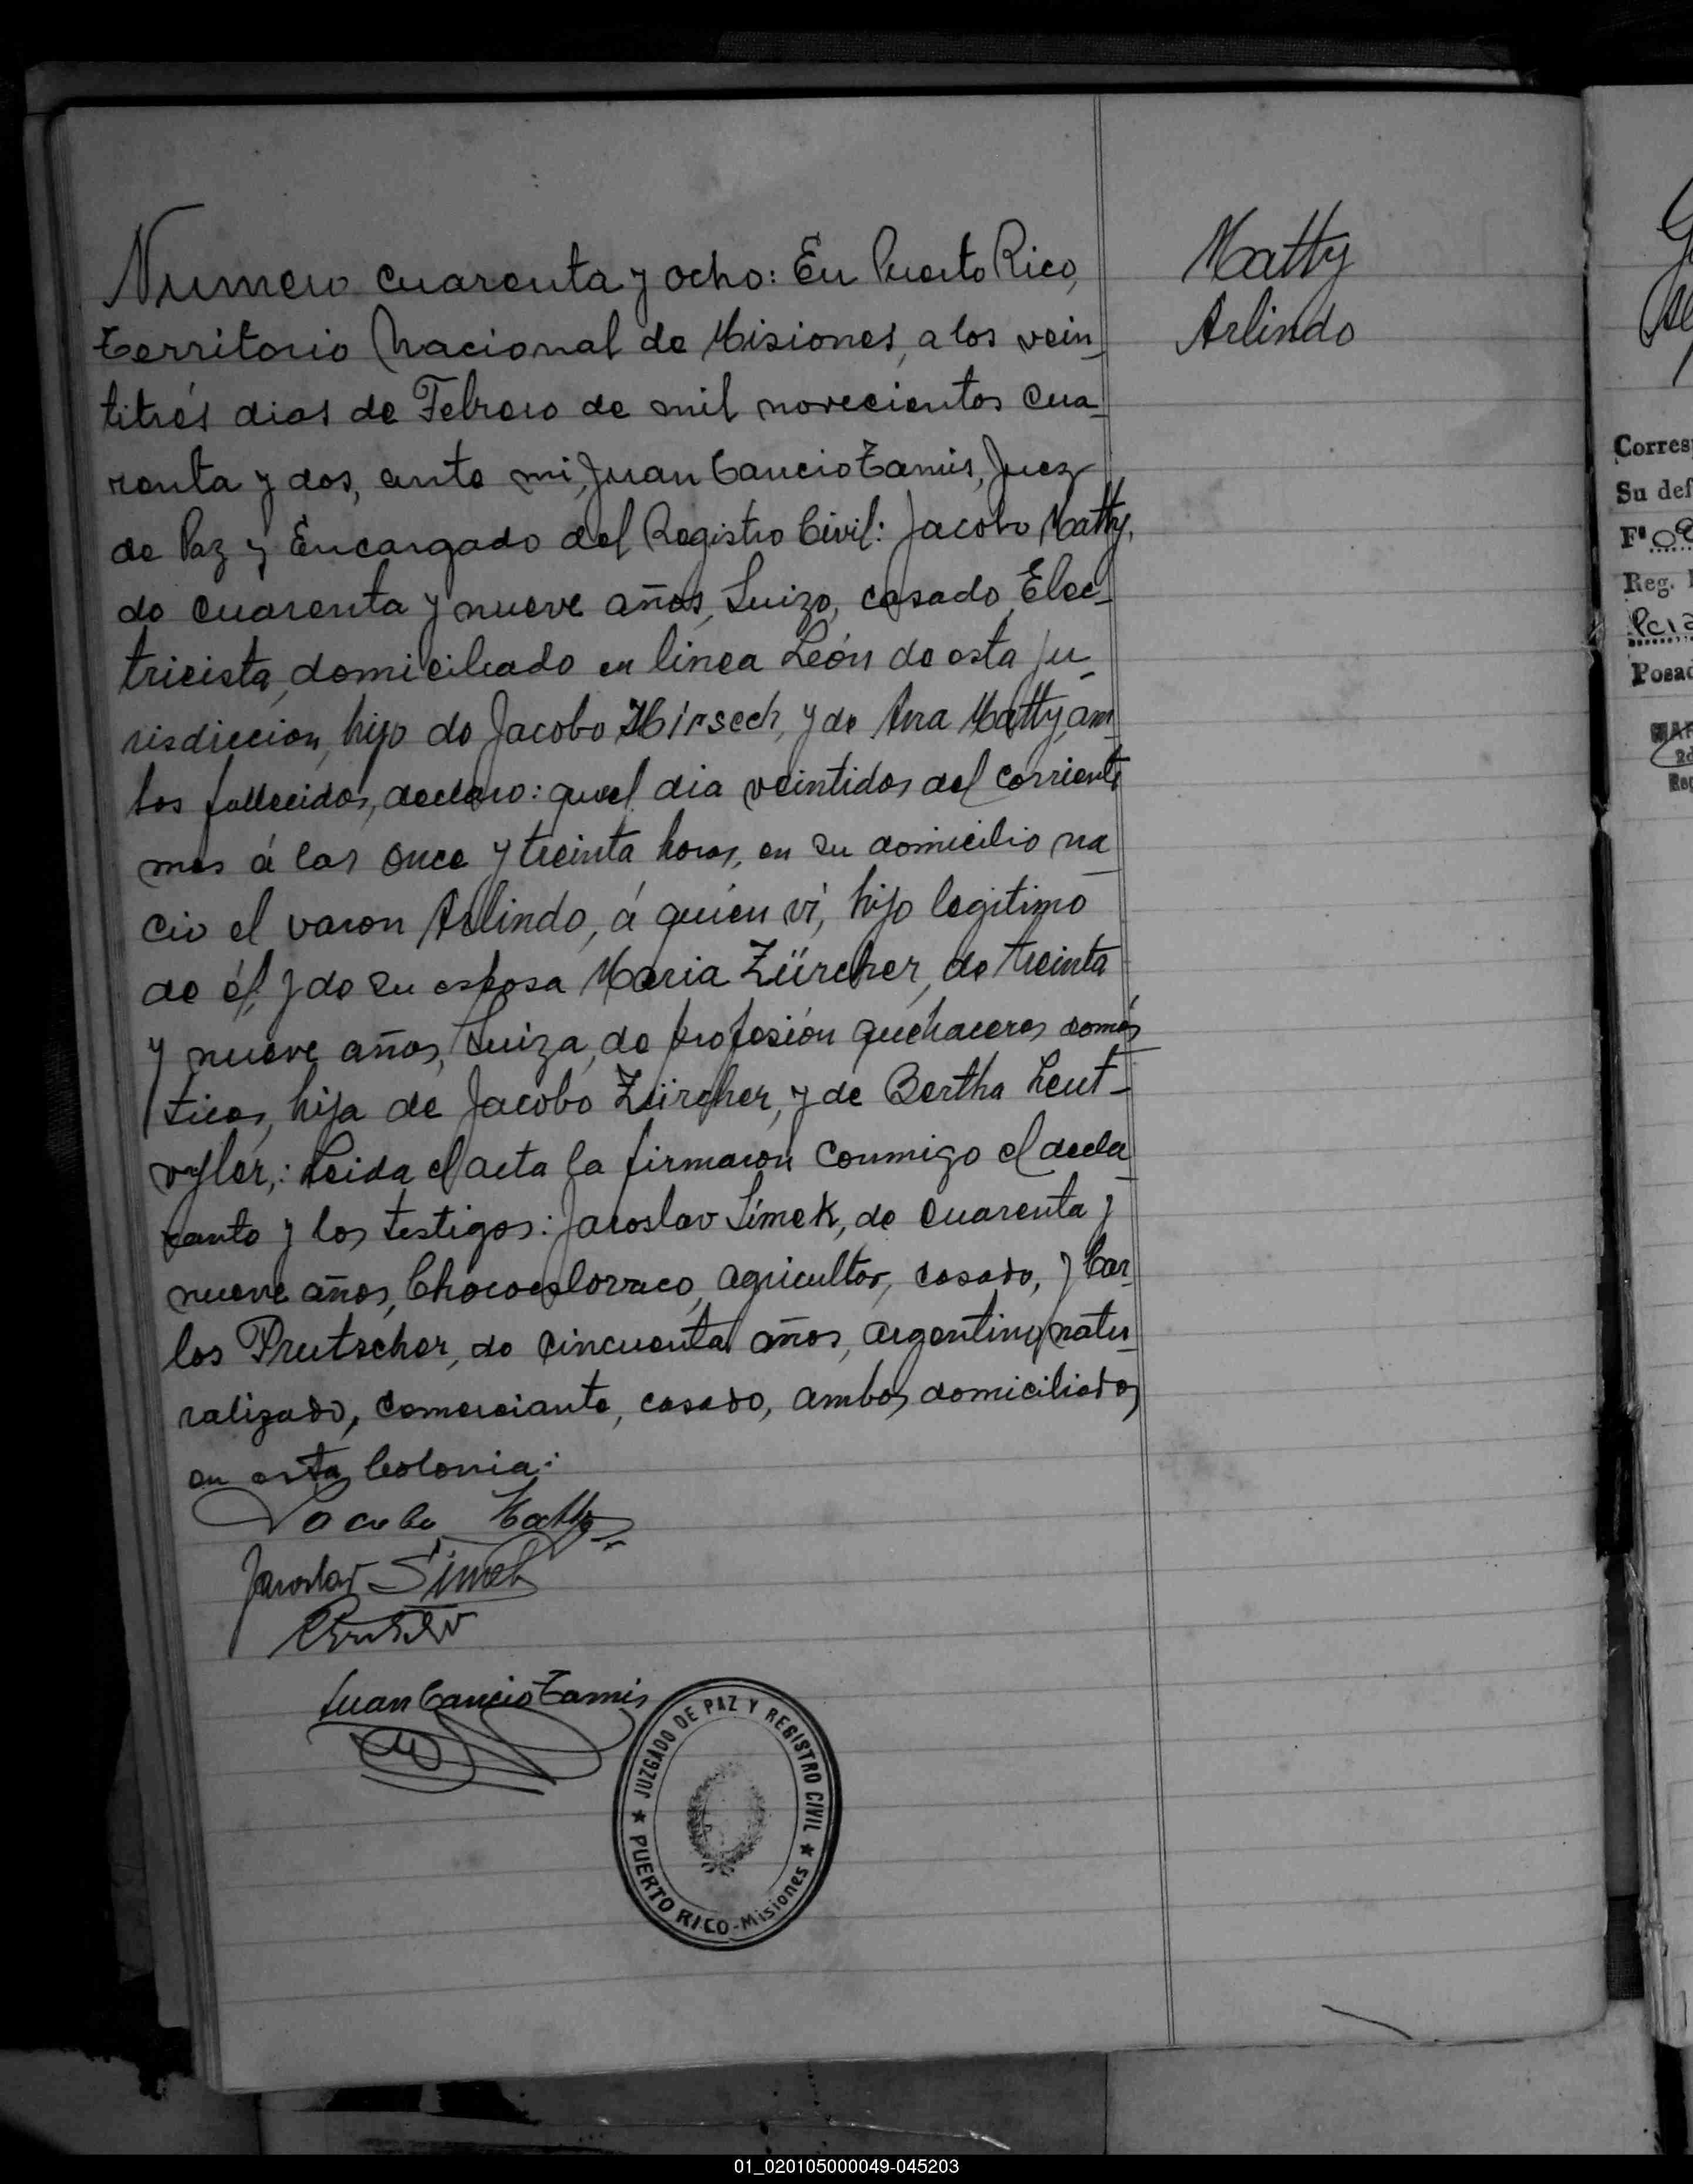 Numero cuarenta y ocho: En Puerto Rico,
Territorio Nacional de Misiones, a los vein-
titrés dias de Febrero de mil novecientos cua-
renta y dos, ante mi, Juan Cancio Tamis, Juez
de Paz y Encargado del Registro Civil: Jacobo Matty,
de cuarenta y nueve años, Suizo, casado, Elec-
tricista, domiciliado en linea León de esta ju-
risdiccion, hijo de Jacobo Hirsech, y de Ana Matty, am-
bos fallecidos, declaro: que el dia veintidos del corriente
mes á las once y treinta horas, en su domicilio na-
cio el varon Arlindo, á quien vi, hijo legitimo
de él, y de su esposa Maria Zürcher, de treinta
y nueve años, Suiza, de profesión quehaceres domés-
ticos, hija de Jacobo Zürcher, y de Bertha Leut-
vyler,: Leida el acta la firmaron conmigo el decla-
rante y los testigos: Jaroslav Simek, de cuarenta y
nueve años, Chocoeslovaco, agricultor, casado, y Car-
los Prutscher, de cincuenta años, argentino, natu-
ralizado, comerciante, casado, ambos domiciliados
en esta Colonia:
Jacobo Matty
Jaroslav Simek
Juan Cancio Tamis
JUZGADO DE PAZ Y REGISTRO CIVIL
PUERTO RICO-Misiones
Matty
Arlindo
Corres
Su def
Fº
Reg.
Posad
01_020105000049-045203